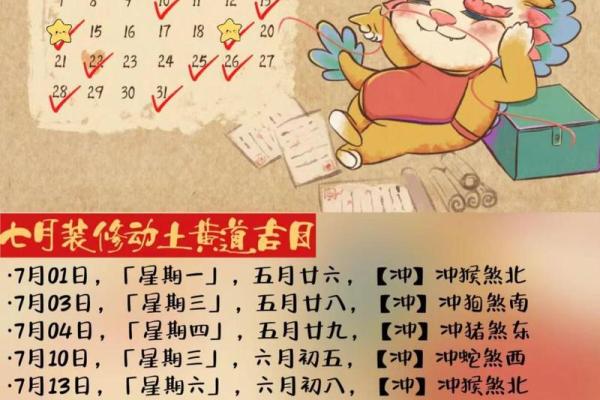 7 8 9 10 11 12 13
15 16 17 18 20
21 22 23 24 25 26 27
28 29 30 31
七月装修动土黄道吉日
·7月01日,「星期一」,五月廿六,【冲】冲猴煞北
·7月03日,「星期三」,五月廿八,【冲】冲狗煞南
·7月04日,「星期四」,五月廿九,【冲】冲猪煞东
·7月10日,「星期三」,六月初五,【冲】冲蛇煞西
·7月13日,「星期六」,六月初八,【冲】冲猴煞北